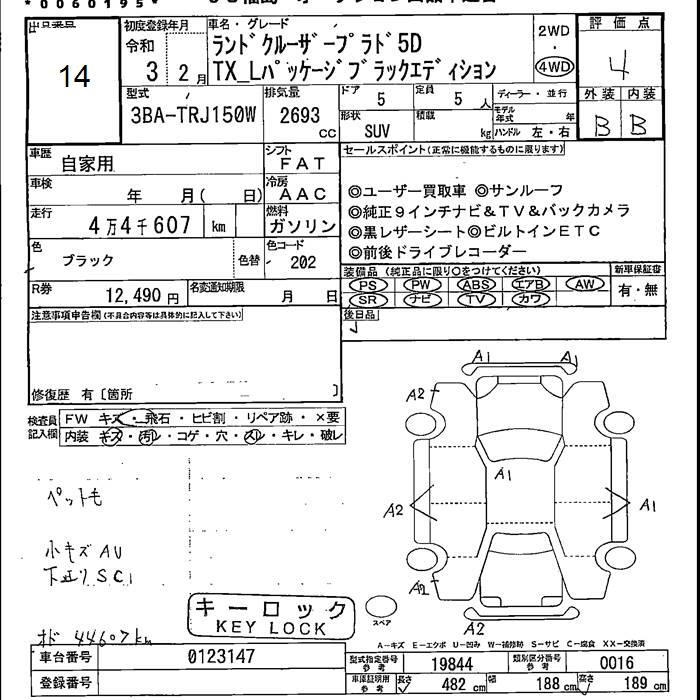 *0060195*
出品番号
14
初度登録年月
令和
3 2月
車名・グレード
ランドクルーザープラド5D
TX_Lパッケージブラックエディション
2WD
・
4WD
評価点
4
外装 内装
B B
型式
3BA-TRJ150W
排気量
2693
cc
ドア
5
定員
5人
形状
SUV
積載
kg
ディーラー・並行
モデル年式 年
ハンドル 左・右
車歴
自家用
シフト
FAT
車検
年 月( 日)
冷房
AAC
走行
4万4千607 km
燃料
ガソリン
色
ブラック
色替
色コード
202
R券
12,490円
名変通知期限
月 日
セールスポイント(正常に機能するものに限ります)
◎ユーザー買取車 ◎サンルーフ
◎純正9インチナビ&TV&バックカメラ
◎黒レザーシート◎ビルトインETC
◎前後ドライブレコーダー
装備品(純正品に限り○をつけてください)
新車保証書
PS PW ABS エアB AW
SR ナビ TV カワ
有・無
後日品
注意事項申告欄(不具合内容等は具体的に記入して下さい)
修復歴 有〔箇所 〕
検査員記入欄
FW キズ・飛石・ヒビ割・リペア跡・×要
内装 キズ・汚レ・コゲ・穴・スレ・キレ・破レ
ペットも
小キズAU
下廻りSC1
オド 44607km
キーロック
KEY LOCK
A1 A1
A2
A1
A2 A1
A2
A2
スペア
A-キズ E-エクボ U-凹み W-補修跡 S-サビ C-腐食 XX-交換済
車台番号
0123147
登録番号
型式指定番号 参考
19844
類別区分番号 参考
0016
車庫証明用 参考
長さ 482 cm
幅 188 cm
高さ 189 cm